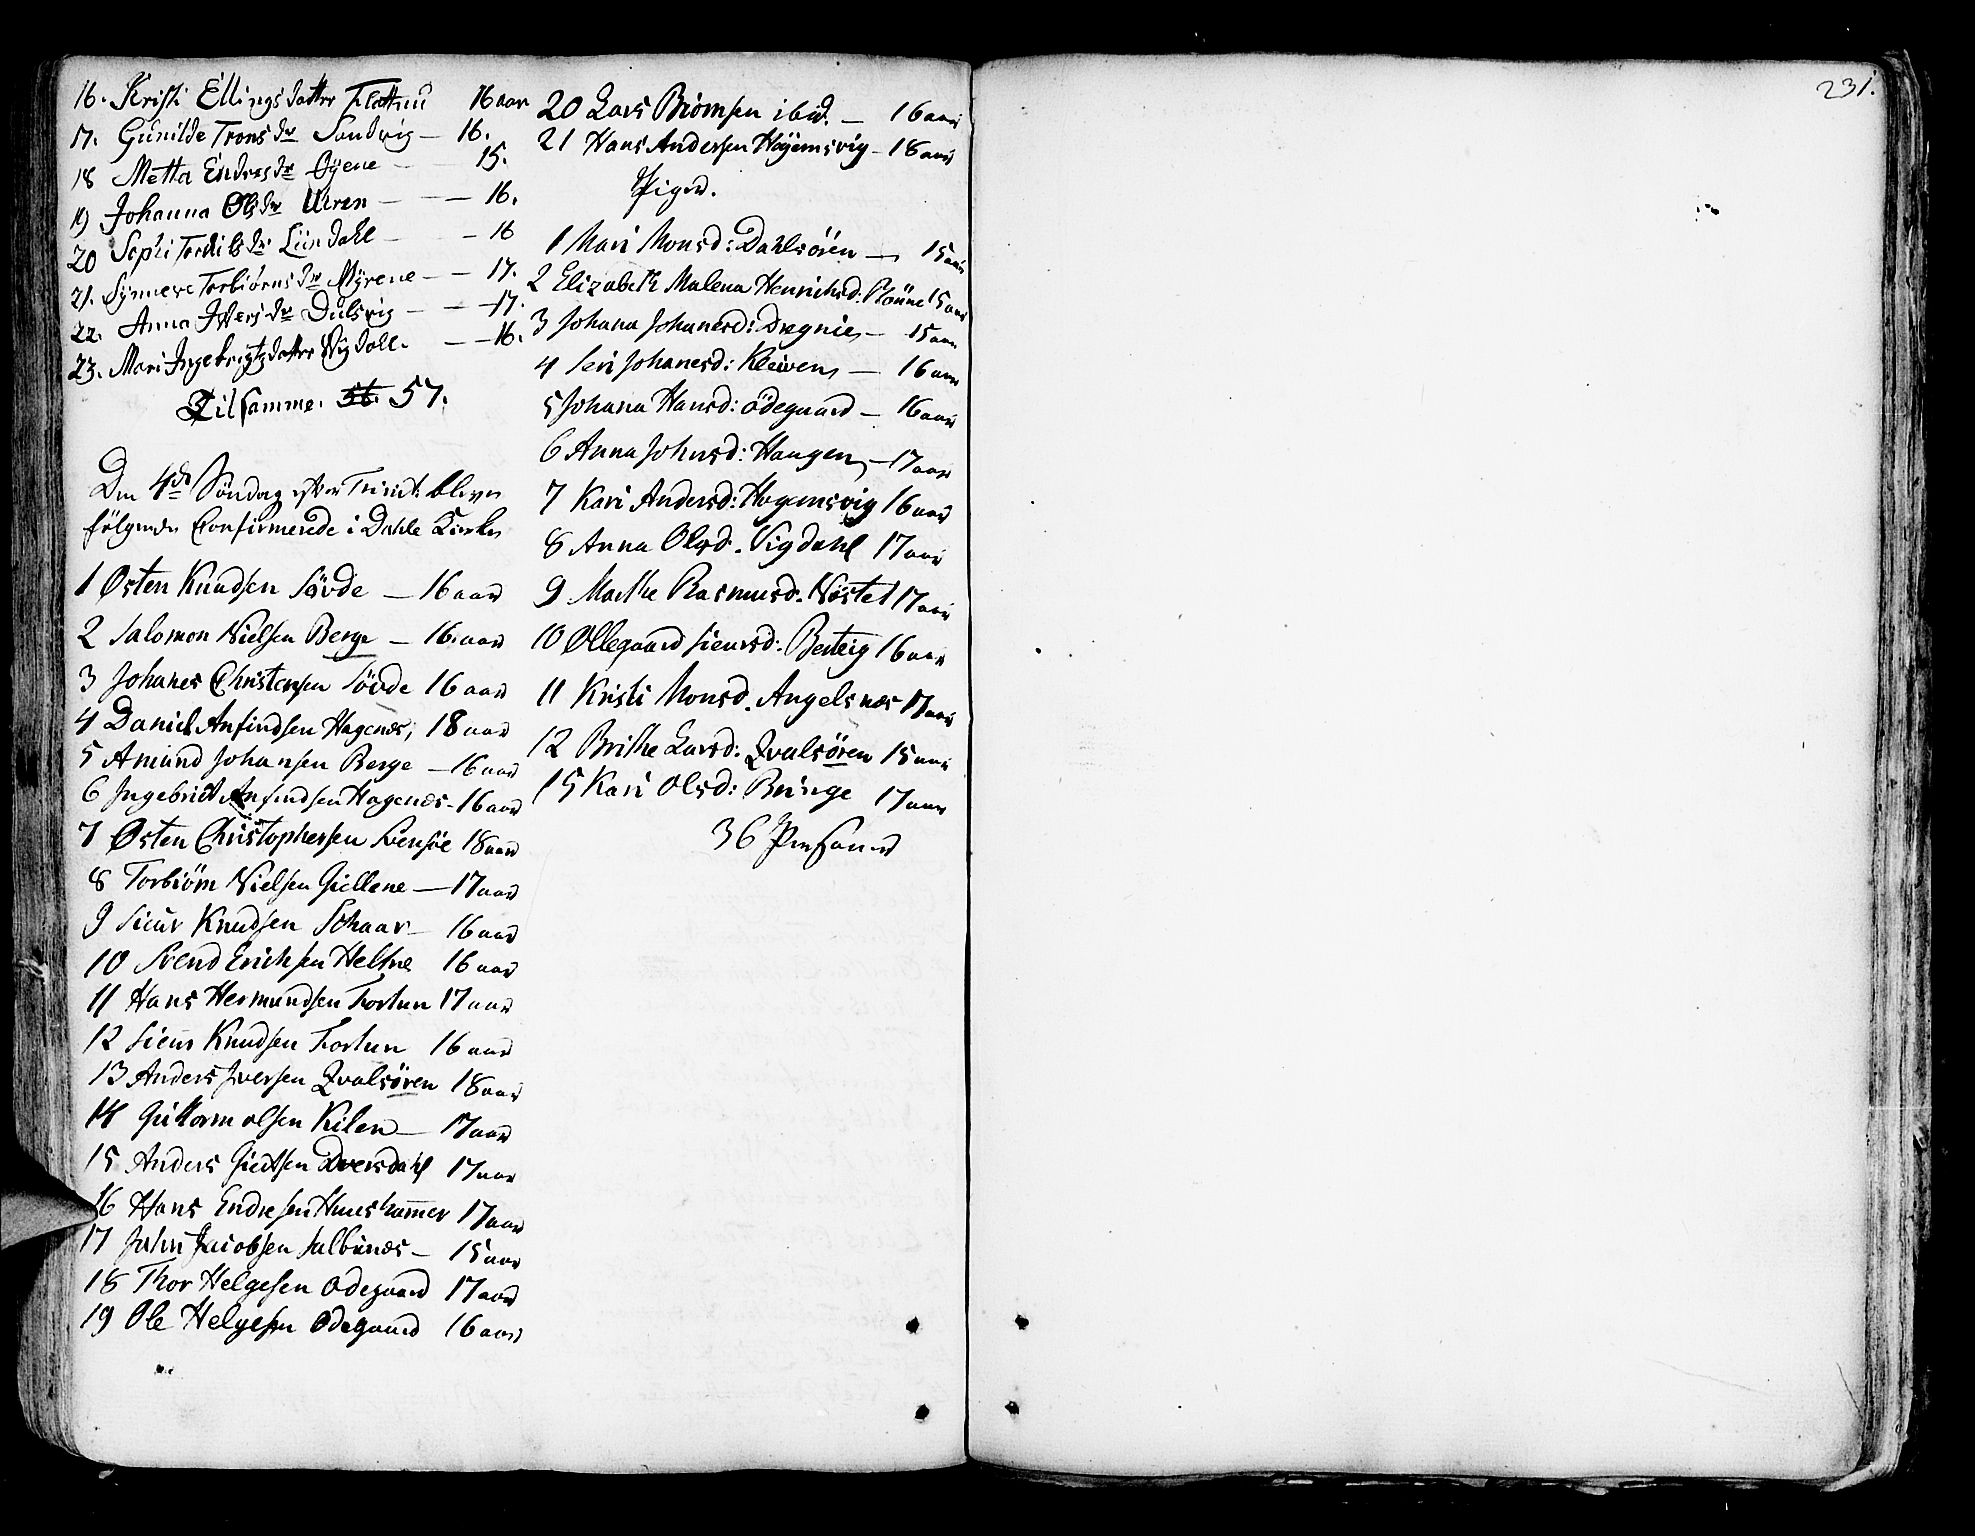 16. Kristi Ellingsdatter Flattun 16 aar
17. Gunilde Trons dr Sandvig — 16.
18 Metta Endres dr Øyene — 15.
19 Johanna Ols dr Uren — 16.
20 Sophi Torkils dr Lündahl — 16
21. Synneve Torbiørns dr Myrene — 17.
22. Anna Ivers dr Dulsvig — 17.
23. Mari Ingebrigtsdatter Vigdall. — 16.
Tilsamme. 56. 57.
Den 4de Söndag efter Trinit: bleve
fölgende Confirmerede i Dahle Kirke
1 Østen Knudsen Sövde — 16 aar
2 Salomon Nielsen Berge — 16 aar
3 Johanes Christensen Sövde 16 aar
4 Daniel Anfindsen Hagenæs, 18 aar
5 Amund Johansen Berge — 16 aar
6 Ingebrict Anfindsen Hagenæs — 16 aar
7 Østen Christophersen 18 aar
8 Torbiörn Nielsen Giellene — 17 aar
9 Siur Knudsen Schaar — 16 aar
10 Svend Erichsen Heltne 16 aar
11 Hans Hermundsen Fortun 17 aar
12 Siur Knudsen Fortun 16 aar
13 Anders Iversen Qvalsören 18 aar
14 Guttorm olsen Kilen — 17 aar
15 Anders Giertsen Dversdahl 17 aar
16 Hans Endresen Huushamer 17 aar
17 John Jacobsen Salbunæs — 15 aar
18 Thor Helgesen Odegaard 17 aar
19 Ole Helgesen Odegaard 16 aar
20 Lars Biörnsen ibid. — 16 aar
21 Hans Andersen Höyemsvig — 18 aar
Piger.
1 Mari Monsd: Dahlsören — 15 aar
2 Elizabeth Malena Henrichsd. 15 aar
3 Johana Johanesd: Drægnie — 15 aar
4 Seri Johanesd: Kleiven — 16 aar
5 Johana Hansd: ödegaard — 16 aar
6 Anna Johnsd: Haugen — 17 aar
7 Kari Andersd: Høyemsvig 16 aar
8 Anna Olsd. Vigdahl 17 aar
9 Marthe Rasmusd. Nöstel 17 aar
10 Ollegaard Siursd: Berteig 16 aar
11 Kristi Monsd. Angelsnæs 17 aar
12 Brithe Larsd: Qvalsören 15 aar
15 Kari Olsd: Bringe 17 aar
36 Personer
231.